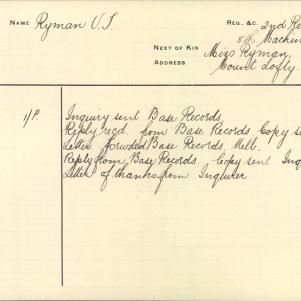 NAME Ryman V.J.
REG. &C. 2nd Re
8/ Machin
NEXT OF KIN Miss Ryman,
ADDRESS Mount Lofty
1/P. Inquiry sent Base Records
Reply recd. from Base Records, Copy se
Letter forwded Base Records, Melb.
Reply from Base Records. Copy sent Inq
Letter of thanks from Inquirer